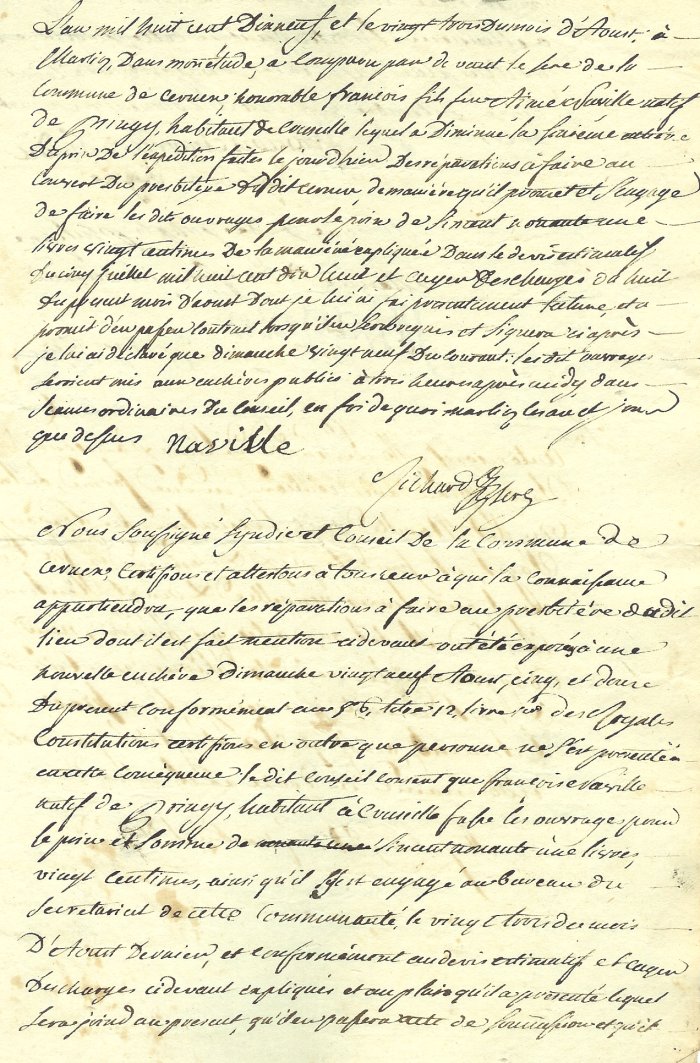 L'an mil huit cent Dixneuf, et le vingt trois du mois d'Aoust, à
Marlioz, Dans mon étude, à Comparu par devant le secre de la
Commune de Cernex honorable françois fils feu Aimé Naville natif
de Pringy, habitant de Cruseille lequel a Diminué la sixième
Du prix De l'expedition faites le jourd'hier Des réparations à faire au
Couvert Du presbitère du dit Cernex de manière qu'il promet et S'engage
de faire les dits ouvrages pour le prix de nonante une
livres vingt centimes De la manière expliquée Dans le devis estimatif
du cinq juillet mil huit cent dix huit et cayer Des charges du huit
du present mois d'aoust Dont je lui ai fai presentement lecture, et a
promit d'en passer Contrat lorsqu'il en sera requis et signera ci après
je lui ai déclaré que dimanche vingt neuf Du courant les dit ouvrages
seroient mis aux enchères publics à trois heures après midy, dans
séances ordinaires du Conseil, en foi de quoi marlioz les an et jour
que dessus Naville
Richard Secre
Nous Soussigné Syndic et Conseil De la Commune de
Cernex, Certifions et attestons à tous ceux à qui la connaissance
appartiendra, que les réparations à faire au presbitère dudit
lieu dont il est fait mention cidevant ont été exposés à une
nouvelle enchère dimanche vingt neuf Aoust, cinq, et douze
Du present Conformément au § 6, titre 12, livre des Royales
Constitutions certifions en outre que personne ne s'est presenté
en cette Conséquence le dit Conseil Consent que françois Naville
natif de Pringy, habitant à Cruseille fasse les ouvrage pour
le prix et Somme de nonante une livres,
vingt Centimes, ainsi qu'il s'y est engagé au bureau du
Secretariat de cette Communauté, le vingt trois du mois
D'Aoust Dernier, et Conformément au devis estimatif et cayer
Des charges cidevant expliqués et au plaix qu'il a presenté lequel
sera joind au present, qu'il en passera acte de soumission et qu'il